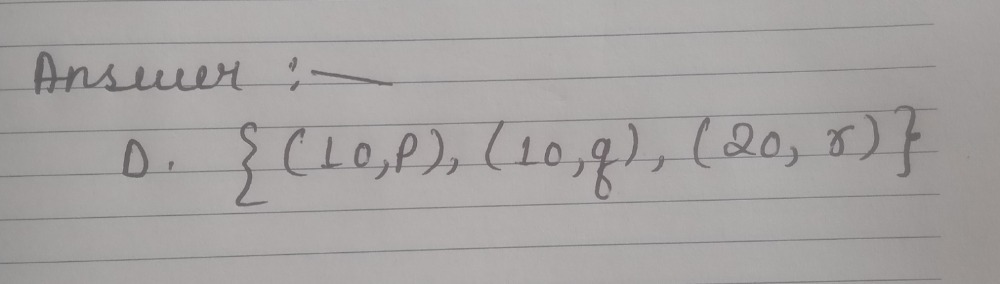 Answer :—
D. {(10,p), (10,q), (20, r)}